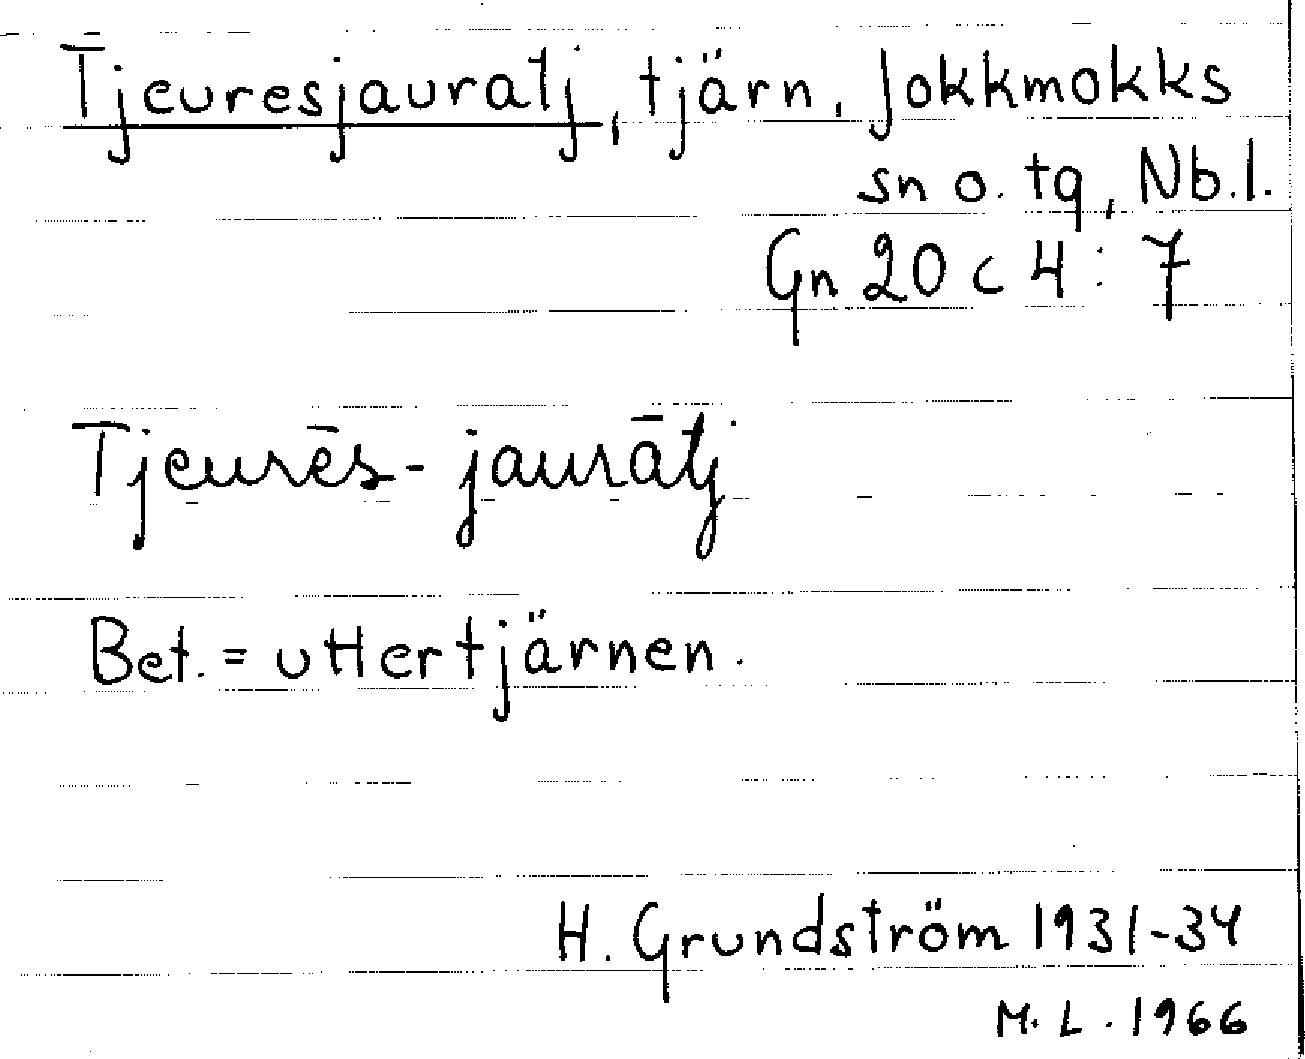 Tjeuresjauratj, tjärn, Jokkmokks
sn o. tg, Nb.l.
Gn 20 c 4 : 7
Tjeurēs- jaurātj
Bet. = uttertjärnen.
H. Grundström 1931-34
M. L. 1966